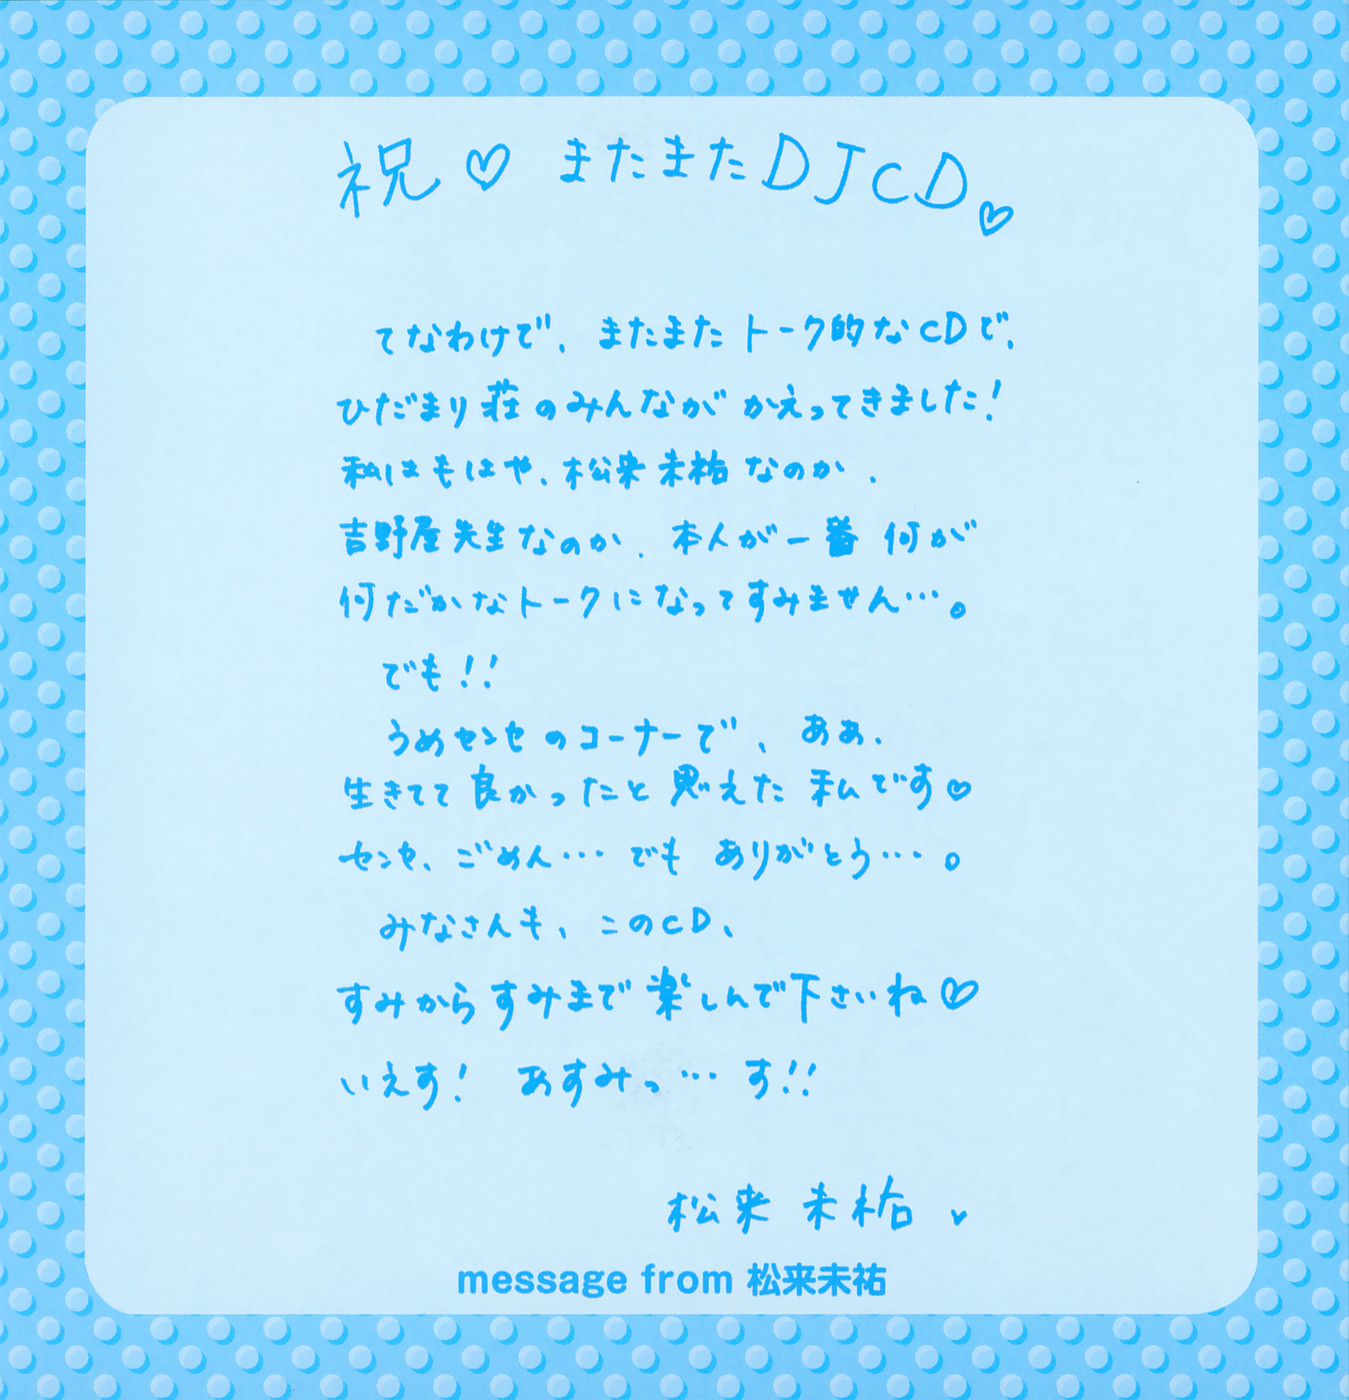 祝♡ またまたDJCD♡
てなわけで、またまたトーク的なCDで、
ひだまり荘のみんながかえってきました!
私はもはや、松来未祐なのか、
吉野屋先生なのか、本人が一番何が
何だかなトークになってすみません…。
でも!!
うめセンセのコーナーで、ああ、
生きてて良かったと思えた私です♡
センセ、ごめん…でもありがとう…。
みなさんも、このCD、
すみからすみまで楽しんで下さいね♡
いえす! あすみっ…す!!
松来未祐
message from 松来未祐